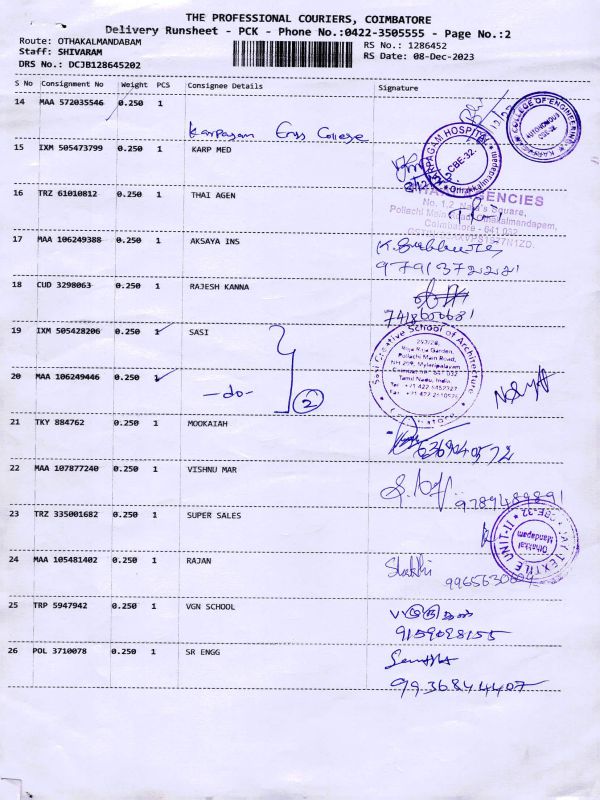 THE PROFESSIONAL COURIERS, COIMBATORE
Delivery Runsheet - PCK - Phone No.:0422-3505555 - Page No.:2
Route: OTHAKALMANDABAM
RS No.: 1286452
Staff: SHIVARAM
RS Date: 08-Dec-2023
DRS No.: DCJB128645202
S No Consignment No Weight PCS Consignee Details Signature
14 MAA 572035546 0.250 1
Karpagam Engg College
COLLEGE OF ENGINEERING
AUTONOMOUS
15 IXM 505473799 0.250 1 KARP MED
KARPAGAM HOSPITAL
CBE-32
16 TRZ 61010812 0.250 1 THAI AGEN
AGENCIES
No. 1,2, Square,
Pollachi Main Othakalmandapam,
Coimbatore - 641 032
17 MAA 106249388 0.250 1 AKSAYA INS
9791372221
18 CUD 3298063 0.250 1 RAJESH KANNA
7418600681
19 IXM 505428206 0.250 1 SASI
Sasi Creative School of Architecture
Pollachi Main Road,
Coimbatore - 641 032
Tamil Nadu, India.
20 MAA 106249446 0.250 1 -do- 2
21 TKY 884762 0.250 1 MOOKAIAH
22 MAA 107877240 0.250 1 VISHNU MAR
9789489891
23 TRZ 335001682 0.250 1 SUPER SALES
TEXTILE UNIT-II
CBE-32
Othakkal
Mandapam
24 MAA 105481402 0.250 1 RAJAN
Shakthi
25 TRP 5947942 0.250 1 VGN SCHOOL
9159028155
26 POL 3710078 0.250 1 SR ENGG
9936844407